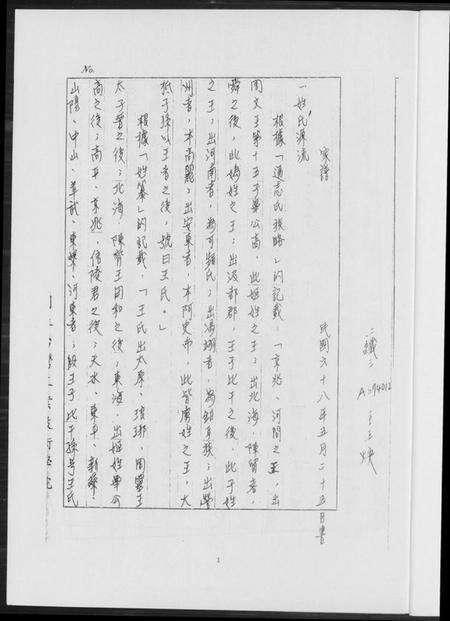 No.
家譜
民國六十八年五月二十五日書
一姓氏源流
根據「通志氏族略」的記載,「京兆、河間之王,出
周文王第十五子畢公高,此姬姓之王;出北海、陳留者,
舜之後,此媯姓之王;出汲郡郡,王子比干之後,此子姓
之王;出河南者,為可頻氏;出馮翊者,為鉗耳族;出營
州者,本高麗;出安東者,本阿史布,此皆虜姓之王,大
抵子孫以王者之後,號曰王氏。」
根據「姓纂」的記載,「王氏出太原、琅琊,周靈王
太子晉之後;北海、陳留王田和之後;東海,出姬姓畢公
高之後;高平、京兆,信陵君之後;天水、東平、新蔡、
山陽、中山、章武、東萊、河東者;殷王子比干孫号王氏
A-94012
1